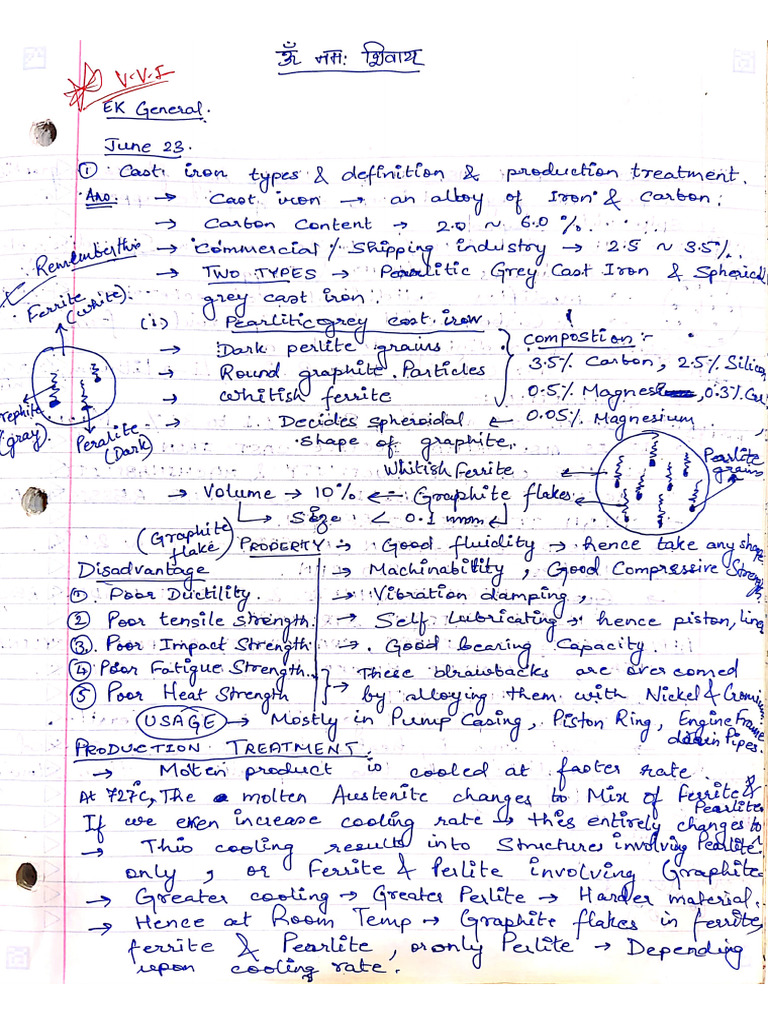 ॐ नमः शिवाय
V.V.I
EK General.
June 23.
① Cast iron types & definition & production treatment.
Ans. → Cast iron → an alloy of Iron & Carbon.
→ Carbon Content → 2.0 ~ 6.0 %.
Remember this → Commercial / Shipping industry → 2.5 ~ 3.5%.
→ TWO TYPES → Pearlitic Grey Cast Iron & Spherical
grey cast iron.
Ferrite (White).
(i) Pearlitic grey cast iron
→ Dark perlite grains.
→ Round graphite Particles
→ Whitish ferrite
Compostion :-
3.5% Carbon, 2.5% Silicon
0.5% Magnes, 0.3% Cu
0.05% Magnesium
→ Decides spheroidal
shape of graphite.
Graphite (gray).
Peralite (Dark)
Whitish Ferrite
Pearlite grains
→ Volume → 10% ← Graphite flakes
→ Size < 0.1 mm
(Graphite flake) PROPERTY :- Good fluidity → hence take any shape
Disadvantage → Machinability, Good Compressive Strength
① Poor Ductility. → Vibration damping,
② Poor tensile strength. → Self lubricating → hence piston, liner
③ Poor Impact Strength → Good bearing Capacity.
④ Poor Fatigue Strength. → These drawbacks are over comed
⑤ Poor Heat Strength by alloying them with Nickel &
USAGE → Mostly in Pump Casing, Piston Ring, Engine Frame
Pipes.
PRODUCTION TREATMENT.
→ Molten product is cooled at faster rate.
At 727°C, The molten Austenite changes to Mix of Ferrite & Pearlite
If we even increase cooling rate → this entirely changes to
→ This cooling results into Structures involving Pearlite
only, or Ferrite & Perlite involving Graphite
→ Greater cooling → Greater Perlite → Harder material.
→ Hence at Room Temp → Graphite flakes in ferrite,
ferrite & Pearlite, or only Perlite → Depending
upon cooling rate.